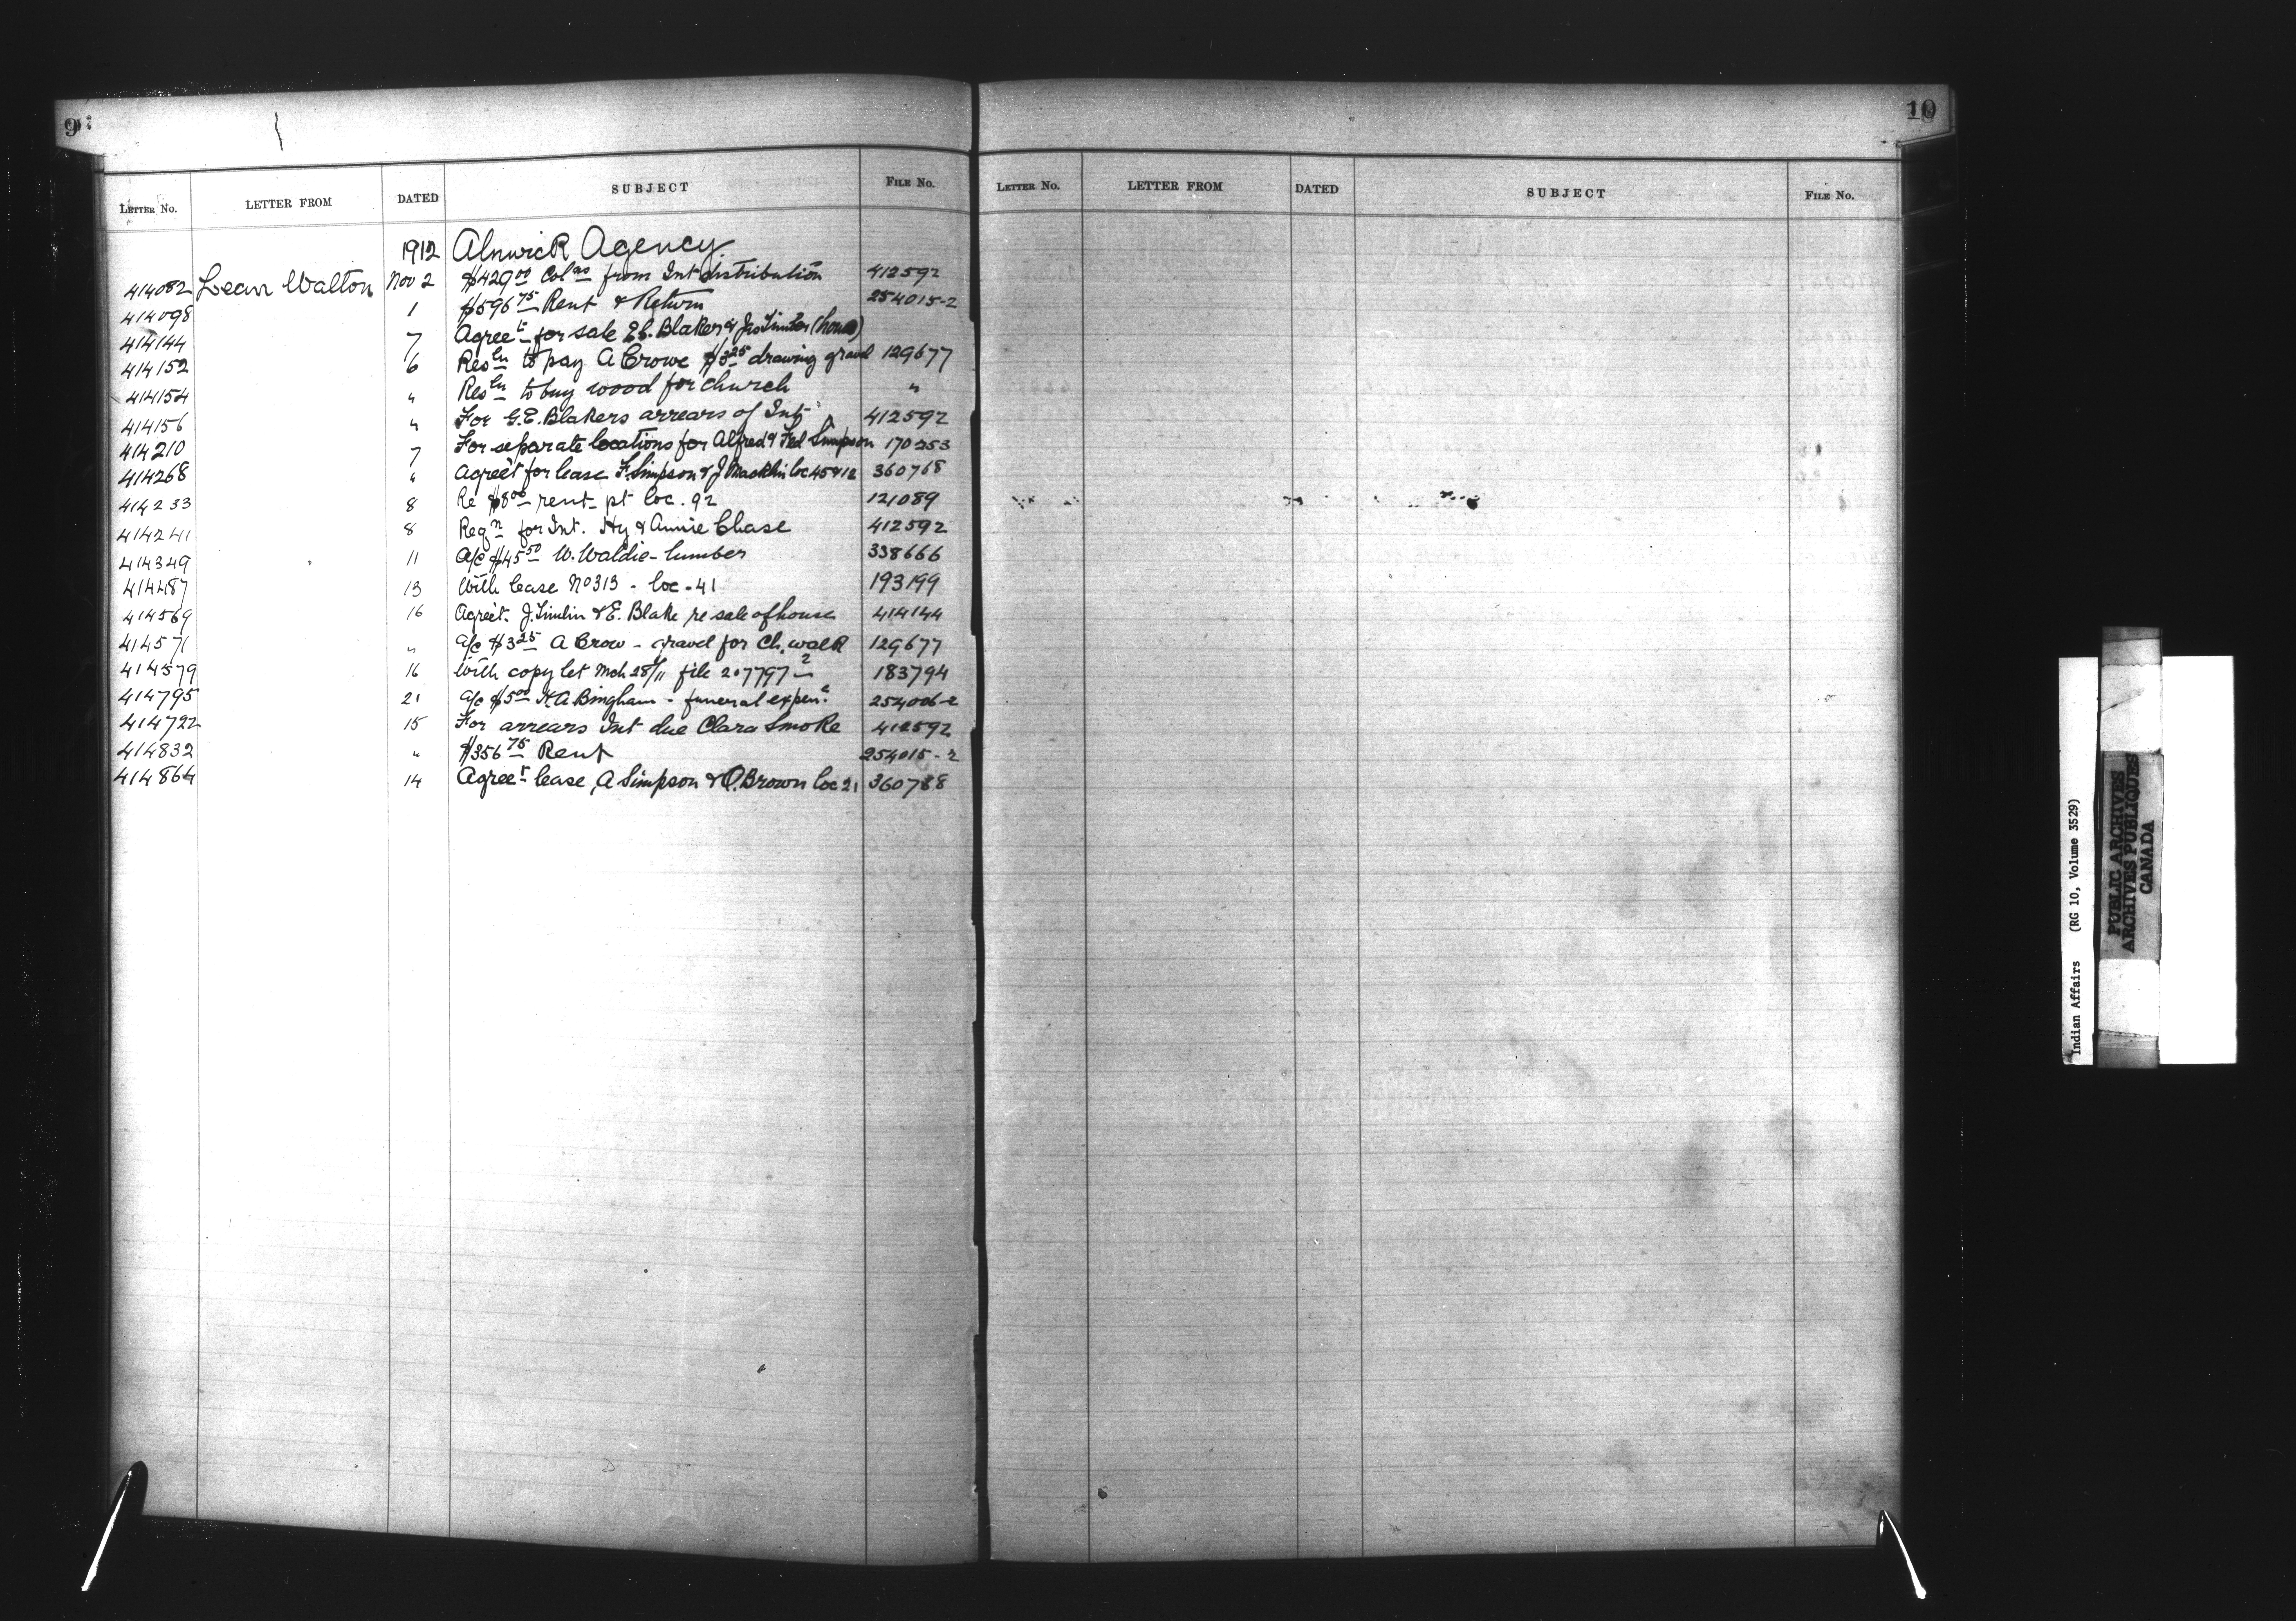 9
LETTER NO. LETTER FROM DATED SUBJECT FILE NO.
1912 Alnwick Agency
414082 Walton Nov 2 $429 00 Col ns from Int distribution 412592
414098 1 $596 75 Rent & Return 254015-2
414144 7 Agree t for sale Blaker & (house)
414152 6 Res ln to pay A Crowe $3 25 drawing gravel 129677
414154 " Res ln to buy wood for church "
414156 " For G.E. Blakers arrears of Int 412592
414210 7 For separate locations for Alfred & Fred Simpson 170253
414268 " Agree't for lease F. Simpson & J Macklin loc 45 & 12 360768
414233 8 Re $8 00 rent pt loc. 92 121089
414241 8 Reqn for Int. Hy & Annie Chase 412592
414349 11 a/c $45 50 W. Waldie - lumber 338666
414487 13 With lease No 313 - loc - 41 193199
414569 16 Agree't. J. Simlin & E. Blake re sale of house 414144
414571 " a/c $3 25 A Crow - gravel for Ch. walk 129677
414579 16 With copy let Mch 28/11 file 207797-2 183794
414795 21 a/c $5 00 H.A Bingham - funeral expen. e 254006-2
414722 15 For arrears Int due Clara Smoke 412592
414832 " $356 75 Rent 254015-2
414864 14 Agree t lease, A Simpson & O. Brown loc 21 360788
10
LETTER NO. LETTER FROM DATED SUBJECT FILE NO.
Indian Affairs (RG 10, Volume 3529)
PUBLIC ARCHIVES
ARCHIVES PUBLIQUES
CANADA